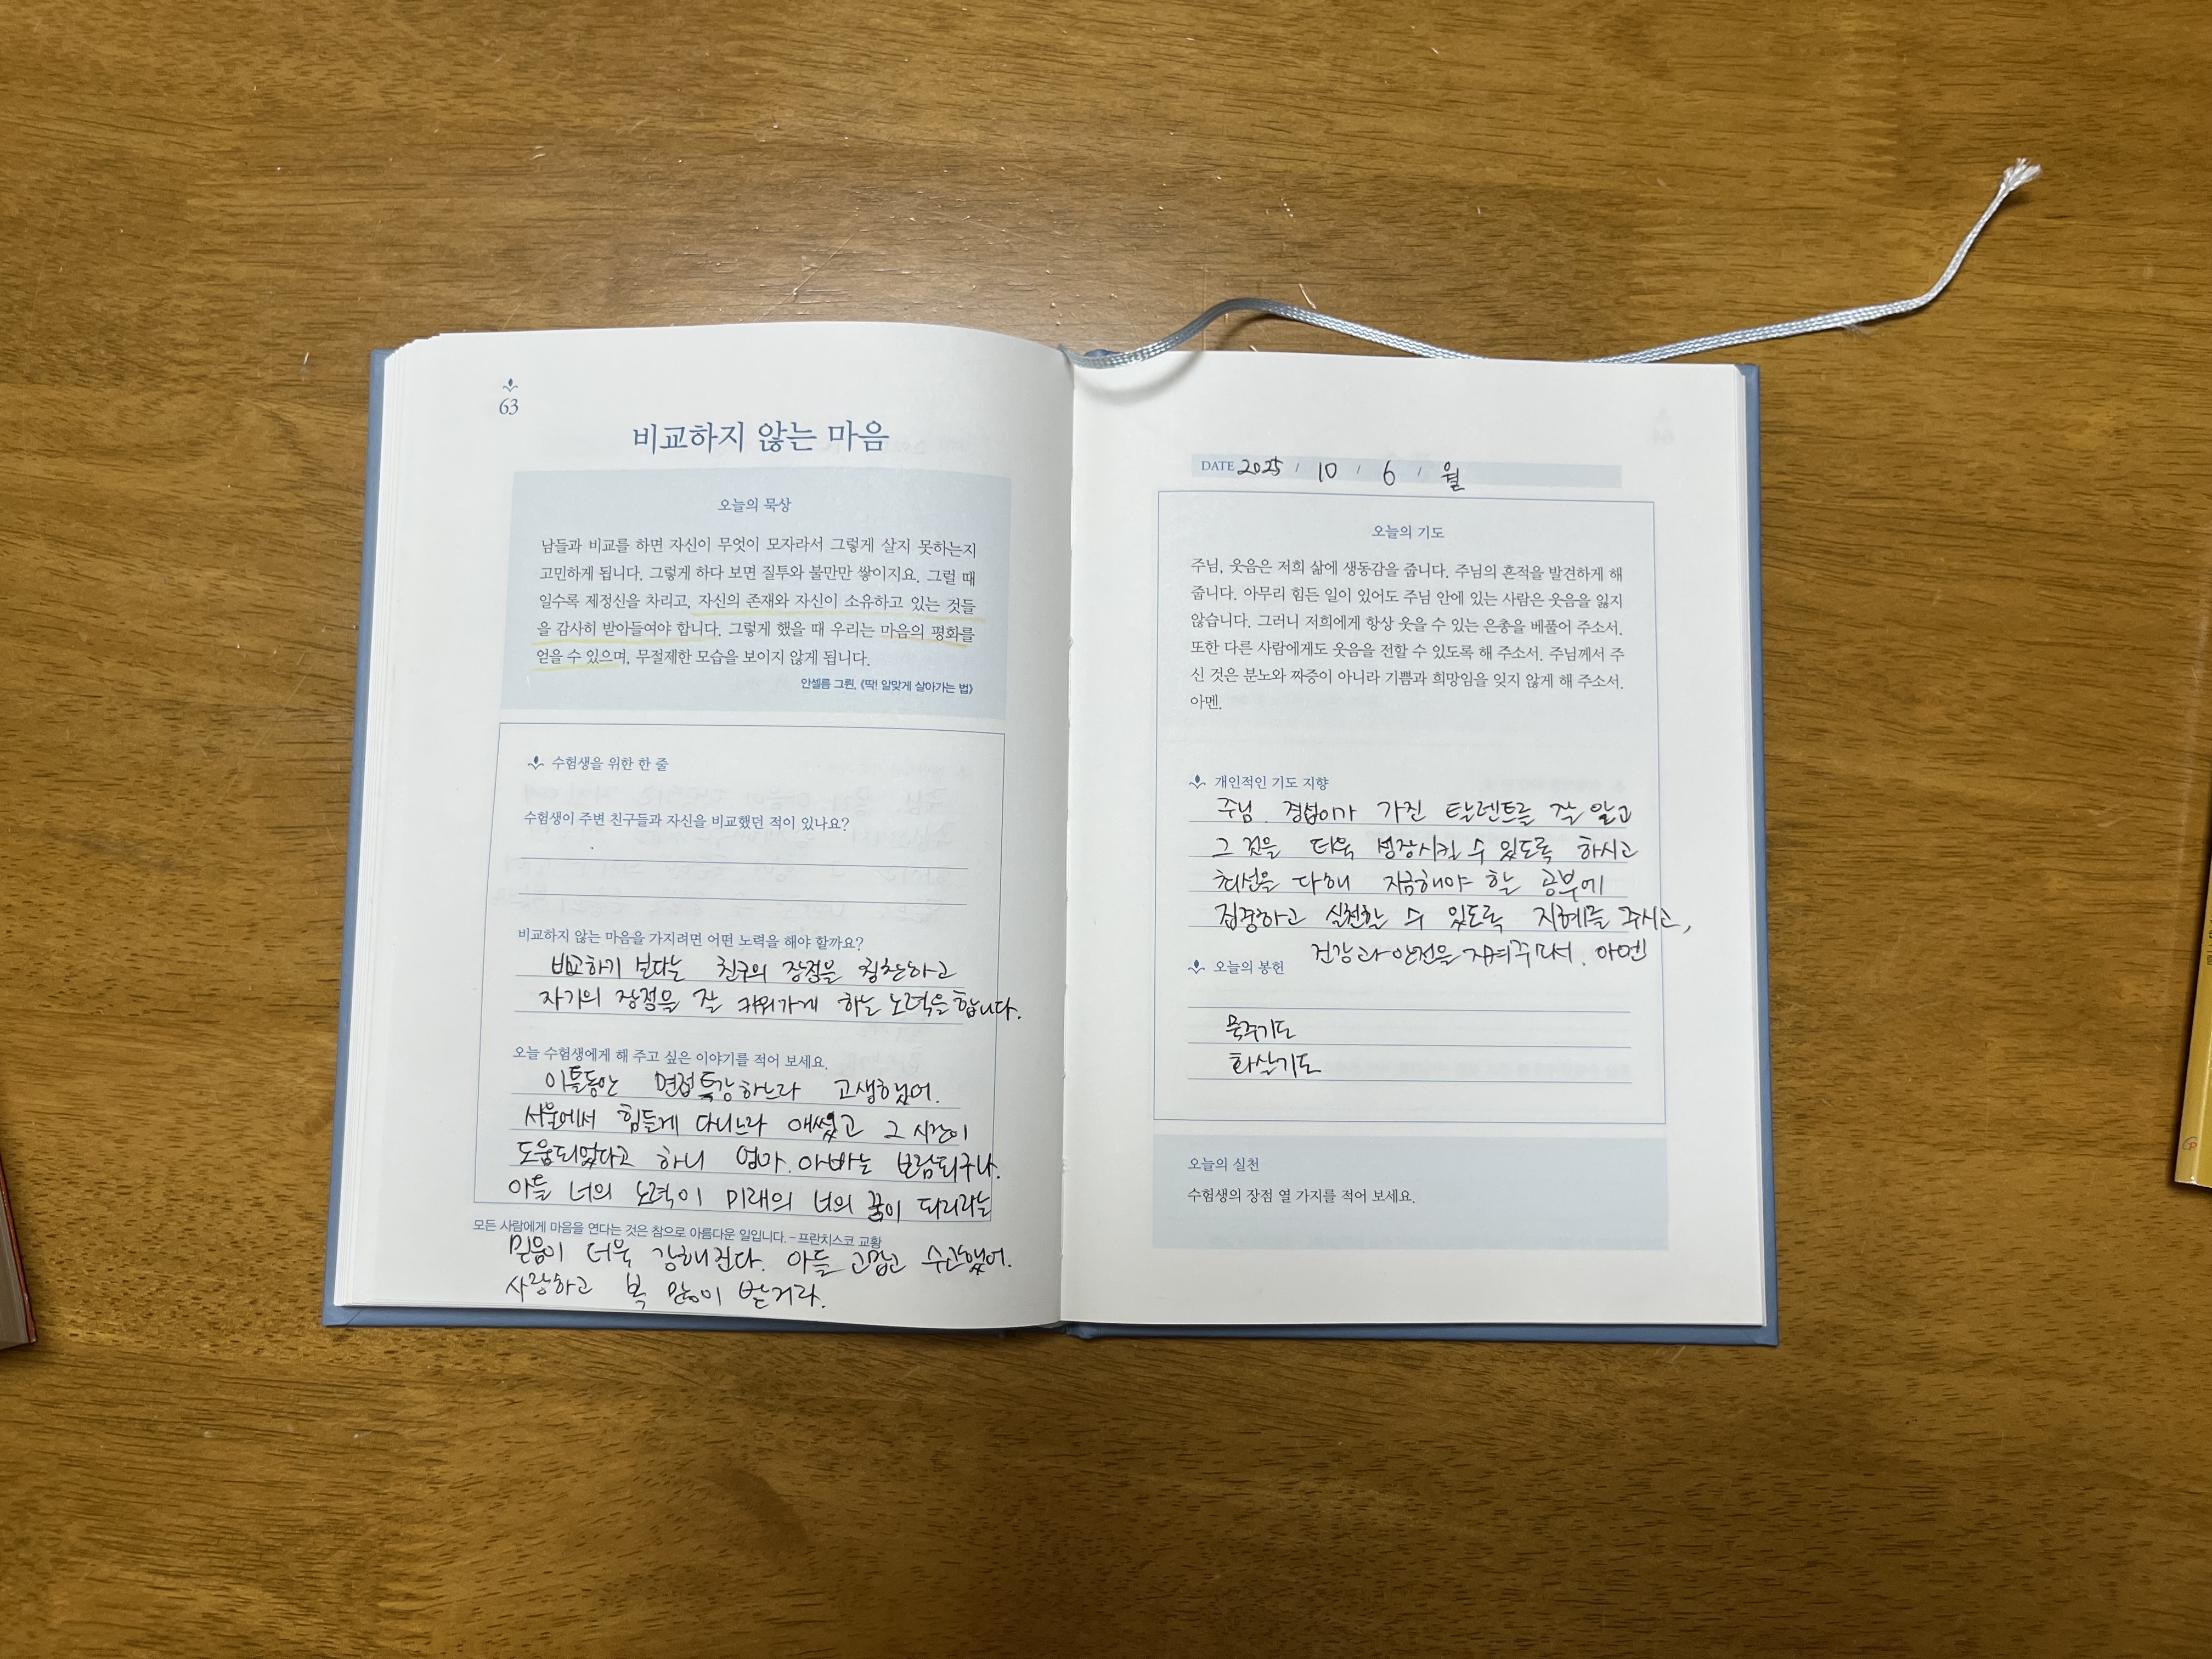 63
비교하지 않는 마음
오늘의 묵상
남들과 비교를 하면 자신이 무엇이 모자라서 그렇게 살지 못하는지
고민하게 됩니다. 그렇게 하다 보면 질투와 불만만 쌓이지요. 그럴 때
일수록 제정신을 차리고, 자신의 존재와 자신이 소유하고 있는 것들
을 감사히 받아들여야 합니다. 그렇게 했을 때 우리는 마음의 평화를
얻을 수 있으며, 무절제한 모습을 보이지 않게 됩니다.
안셀름 그륀, 《딱! 알맞게 살아가는 법》
수험생을 위한 한 줄
수험생이 주변 친구들과 자신을 비교했던 적이 있나요?
비교하지 않는 마음을 가지려면 어떤 노력을 해야 할까요?
비교하기 보다는 친구의 장점을 칭찬하고
자기의 장점을 잘 키워가게 하는 노력을 합니다.
오늘 수험생에게 해 주고 싶은 이야기를 적어 보세요.
이틀동안 면접특강하느라 고생했어.
서울에서 힘들게 다니느라 애썼고 그 시간이
도움되었다고 하니 엄마. 아빠는 보람되구나.
아들 너의 노력이 미래의 너의 꿈이 되리라는
모든 사람에게 마음을 연다는 것은 참으로 아름다운 일입니다. - 프란치스코 교황
믿음이 더욱 강해진다. 아들 고맙고 수고했어.
사랑하고 복 많이 받거라.
DATE 2025 / 10 / 6 / 월
오늘의 기도
주님, 웃음은 저희 삶에 생동감을 줍니다. 주님의 흔적을 발견하게 해
줍니다. 아무리 힘든 일이 있어도 주님 안에 있는 사람은 웃음을 잃지
않습니다. 그러니 저희에게 항상 웃을 수 있는 은총을 베풀어 주소서.
또한 다른 사람에게도 웃음을 전할 수 있도록 해 주소서. 주님께서 주
신 것은 분노와 짜증이 아니라 기쁨과 희망임을 잊지 않게 해 주소서.
아멘.
개인적인 기도 지향
주님. 경섭이가 가진 탈렌트를 잘 알고
그 것을 더욱 성장시킬 수 있도록 하시고
최선을 다해 지금해야 할 공부에
집중하고 실천할 수 있도록 지혜를 주시고,
건강과 안전을 지켜주소서. 아멘
오늘의 봉헌
묵주기도
화살기도
오늘의 실천
수험생의 장점 열 가지를 적어 보세요.